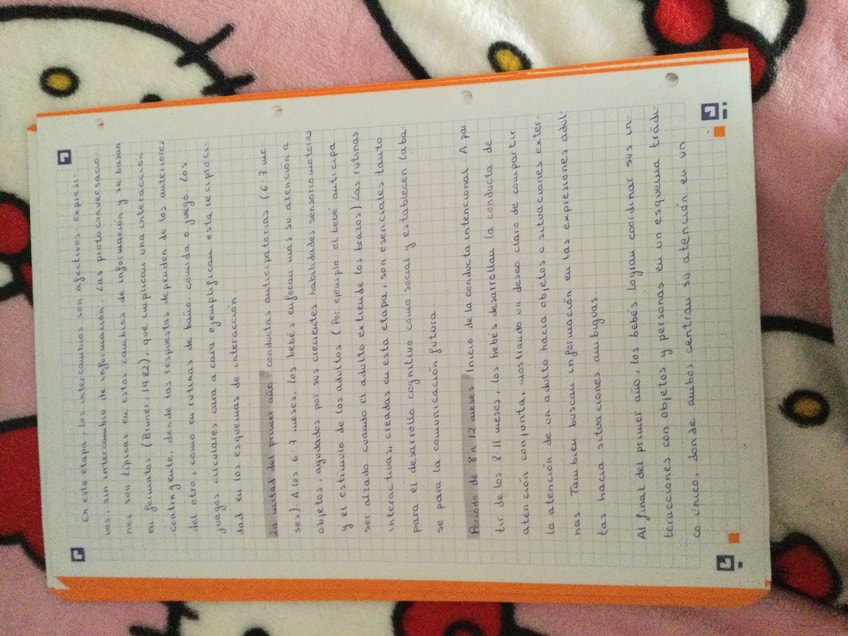 En esta etapa, los intercambios son afectivos, expresi-
vos, sin intercambio de información. Las protoconversacio-
nes son típicas en estos cambios de información y se basan
en formatos (Bruner, 1982), que implican una interacción
contingente, donde las respuestas dependen de los anteriores
del otro, como en rutinas de baño, comida o juego. Los
juegos circulares cara a cara ejemplifican esta reciproci-
dad en los esquemas de interacción
2a mitad del primer año: conductas anticipatorias (6-7 me
ses). A los 6-7 meses, los bebés enfocan mas su atención a
objetos, ayudados por sus crecientes habilidades sensoriomotoras
y el estímulo de los adultos (Por ejemplo el bebé anticipa
ser alzado cuando el adulto extiende los brazos) Las rutinas
interactivas, creadas en esta etapa, son esenciales tanto
para el desarrollo cognitivo como social y establecen la ba-
se para la comunicación futura.
Periodo de 8 a 12 meses: Inicio de la conducta intencional. A par
tir de los 8-11 meses, los bebés desarrollan la conducta de
atención conjunta, mostrando un deseo claro de compartir
la atención de un adulto hacia objetos o situaciones exter-
nas. Tambien buscan información en las expresiones adul-
tas hacia situaciones ambiguas.
Al final del primer año, los bebés logran coordinar sus in-
teracciones con objetos y personas en un esquema triádi-
co único, donde ambos centran su atención en un